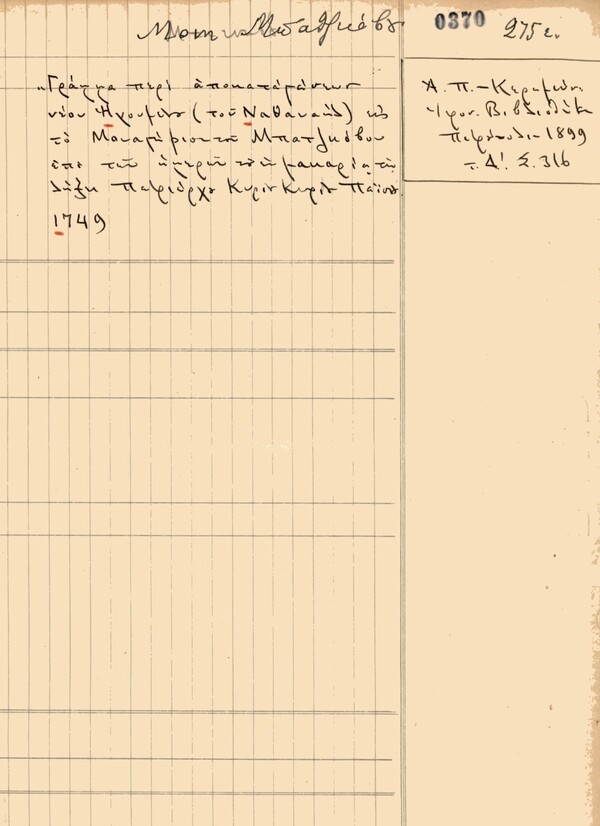 Μονη Μπατζκόβου
0370
275 ε.
„Γράμμα περὶ ἀποκαταστάσεως
νέου Ἡγουμένου (τοῦ Ναθαναὴλ) εἰς
τὸ Μοναστήριον τοῦ Μπατζκόβου
ἐπὶ τῶν ἡμερῶν τοῦ μακαρίᾳ τῇ
λήξει Πατριάρχου Κυρίου Κυρίου Παϊσίου
1749
Α. Π. – Κεραμεύς
Ἱεροσ. Βιβλιοθήκη
Πετρούπολη 1899
τ. Δ'. Σ. 316